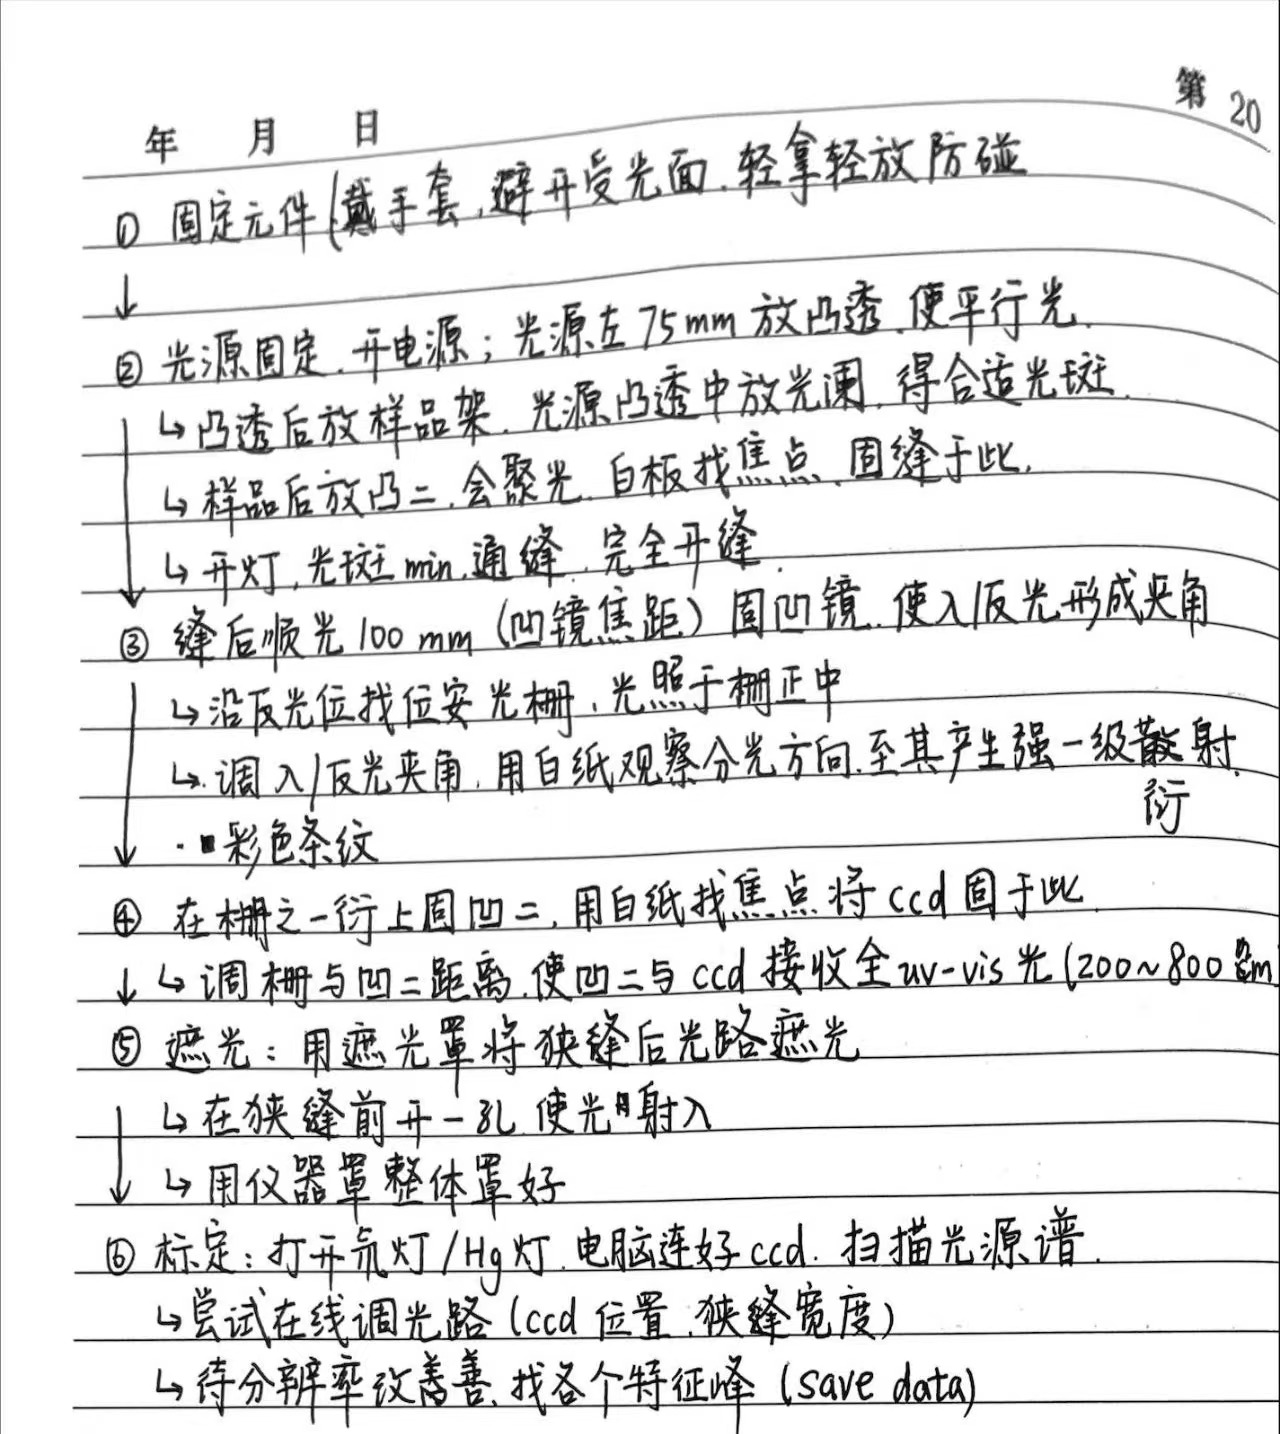 第 20
年 月 日
① 固定元件(戴手套,避开受光面.轻拿轻放防碰
↓
② 光源固定.开电源;光源左75mm放凸透.使平行光.
↳凸透后放样品架.光源凸透中放光阑.得合适光斑.
↳样品后放凸二.会聚光.白板找焦点.固缝于此.
↳开灯,光斑min.通缝.完全开缝.
③ 缝后顺光100mm(凹镜焦距)固凹镜.使入/反光形成夹角
↳沿反光位找位安光栅.光照于栅正中
↳调入/反光夹角.用白纸观察分光方向.至其产生强一级散射.
衍
彩色条纹
④ 在栅之一衍上固凹二.用白纸找焦点将ccd固于此.
↓ ↳调栅与凹二距离.使凹二与ccd接收全uv-vis光(200~800nm
⑤ 遮光:用遮光罩将狭缝后光路遮光
↳在狭缝前开一孔.使光射入
↳用仪器罩整体罩好
⑥ 标定:打开氘灯/Hg灯.电脑连好ccd.扫描光源谱.
↳尝试在线调光路(ccd位置.狭缝宽度)
↳待分辨率改善.找各个特征峰(save data)